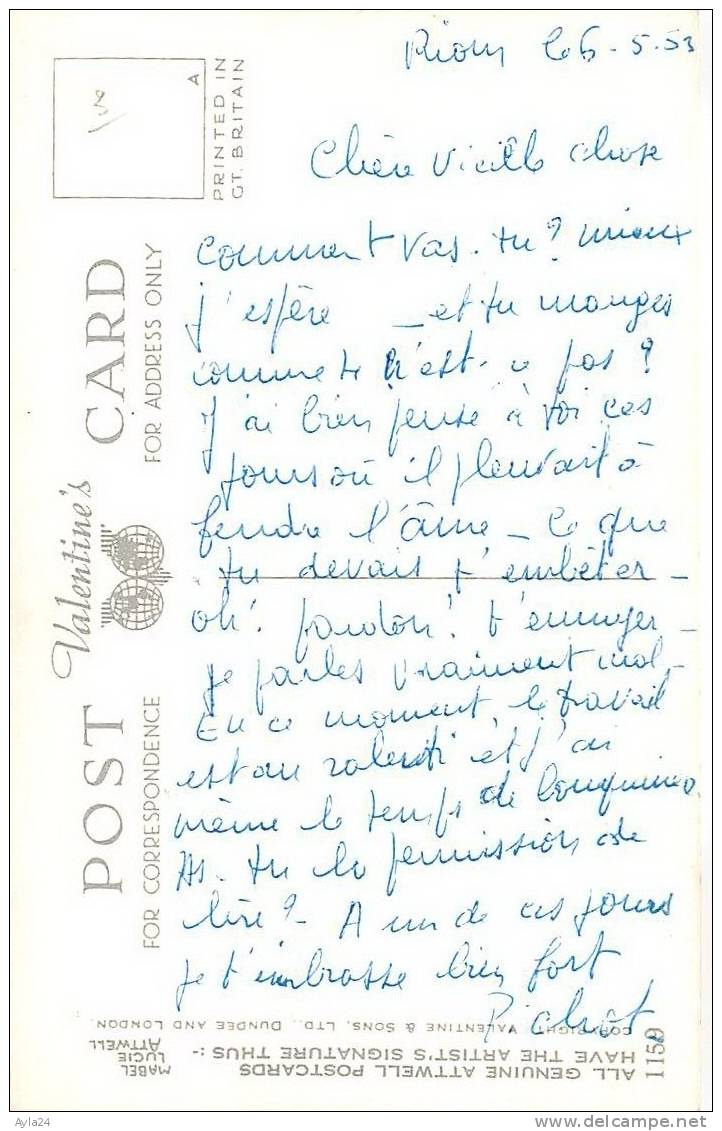 Riom le 6-5-53
Chère vieille chose
comment vas-tu? mieux
j'espère _ et tu manges
comme te n'est-ce pas?
J'ai bien pensé à toi ces
jours où il pleuvait à
fendre l'âme _ Ce que
tu devais t'embêter _
oh! pardon! t'ennuyer _
je parles vraiment mal _
En ce moment, le travail
est au ralenti et j'ai
même le temps de bouquiner
As-tu la permission de
lire? _ A un de ces jours
je t'embrasse bien fort
Pichot
3
A
PRINTED IN
GT. BRITAIN
POST CARD
Valentine's
FOR CORRESPONDENCE
FOR ADDRESS ONLY
ALL GENUINE ATTWELL POSTCARDS
HAVE THE ARTIST'S SIGNATURE THUS :-
MABEL
LUCIE
ATTWELL
COPYRIGHT, VALENTINE & SONS, LTD., DUNDEE AND LONDON.
1159
Ayla24
www.delcampe.net